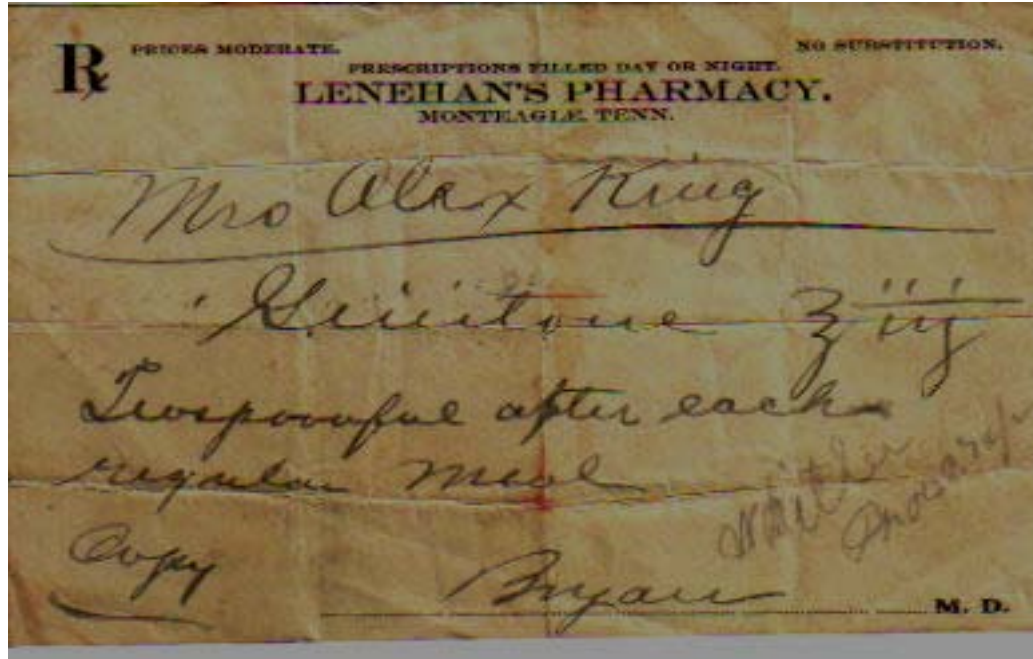 Rx PRICES MODERATE. NO SUBSTITUTION.
PRESCRIPTIONS FILLED DAY OR NIGHT.
LENEHAN'S PHARMACY.
MONTEAGLE, TENN.
Mrs Alex King
ʒ iij
after each
regular meal
Copy
Bryan M. D.